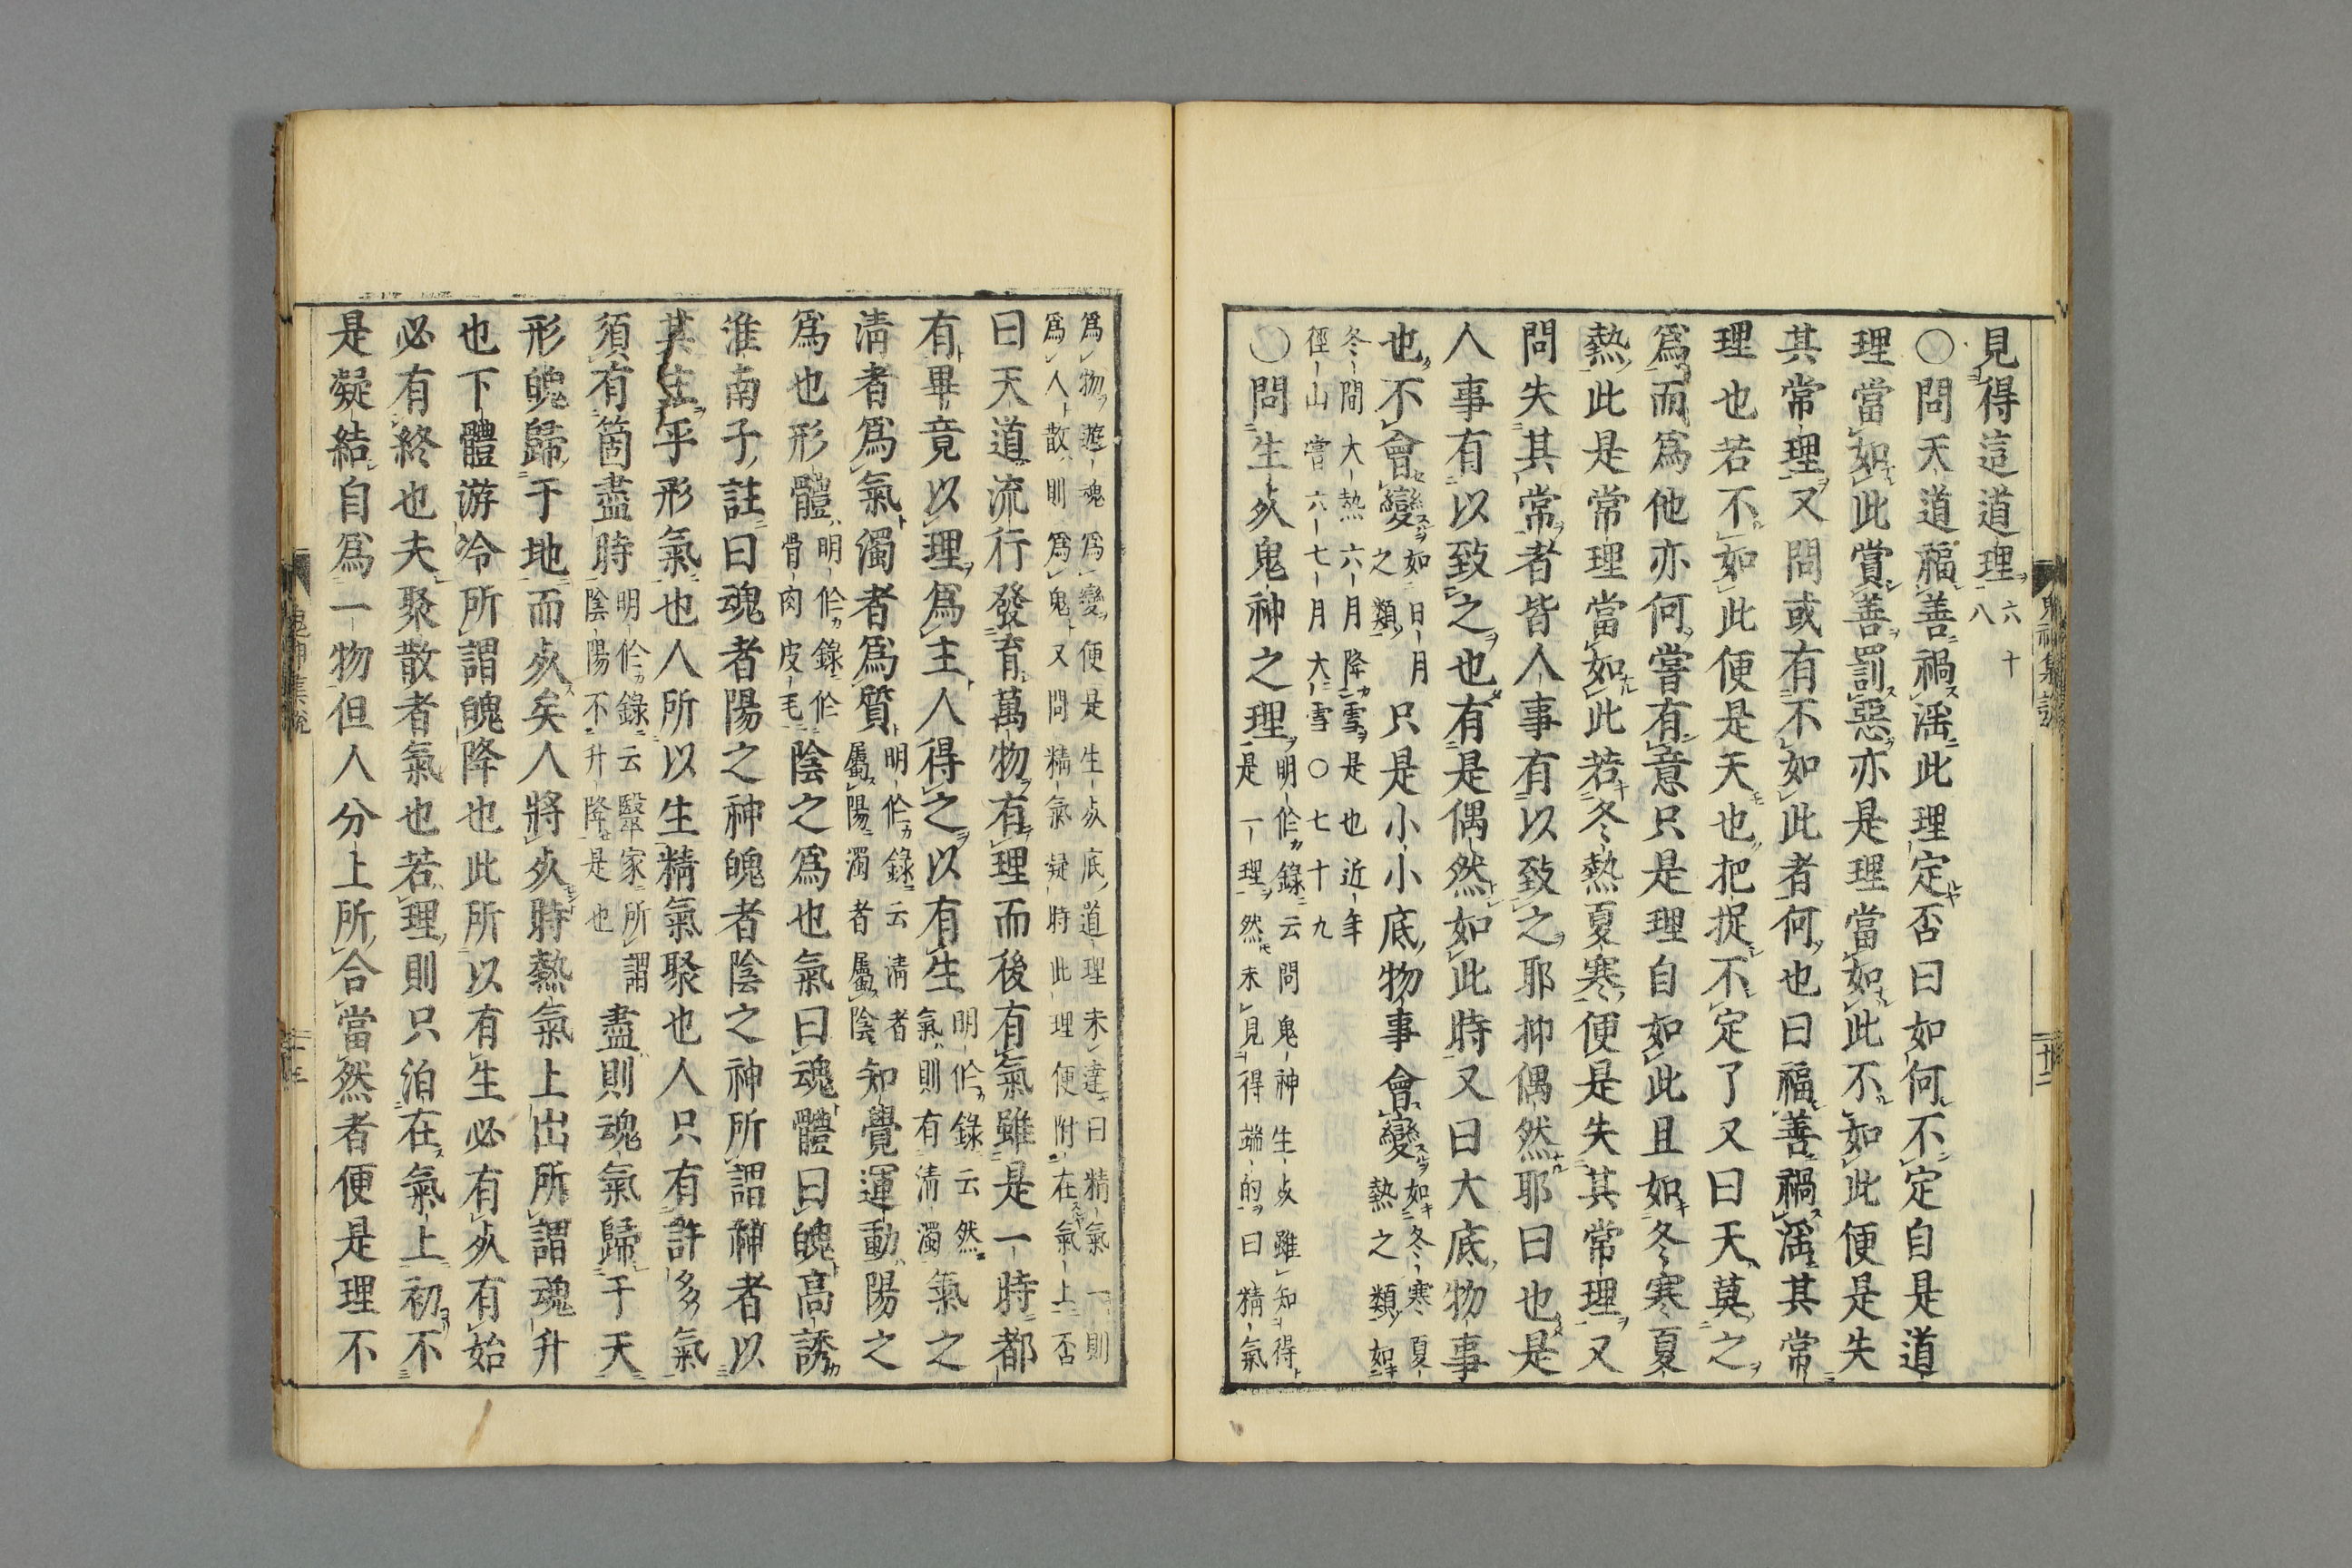 見得這道理六十八
○問天道福善禍淫此理定否曰如何不定自是道
理當如此賞善罰惡亦是理當如此不如此便是失
其常理又問或有不如此者何也曰福善禍淫其常
理也若不如此便是天也把捉不定了又曰天莫之
爲而爲他亦何嘗有意只是理自如此且如冬寒夏
熱此是常理當如此若冬熱夏寒便是失其常理又
問失其常者皆人事有以致之耶抑偶然耶曰也是
人事有以致之也有是偶然如此時又曰大底物事
也不會變如日月之類只是小小底物事會變如冬寒夏熱之類如
冬間大熱六月降雪是也近年徑山嘗六七月大雪○七十九
○問生死鬼神之理明作錄云問鬼神生死雖知得是一理然未見得端的曰精氣
爲物遊魂爲變便是生死底道理未達曰精氣凝則爲人散則爲鬼又問精氣凝時此理便附在氣上否
曰天道流行發育萬物有理而後有氣雖是一時都
有畢竟以理爲主人得之以有生明作錄云然氣則有清濁氣之
清者爲氣濁者爲質明作錄云清者屬陽濁者屬陰知覺運動陽之
爲也形體明作錄作骨肉皮毛陰之爲也氣曰魂體曰魄高誘
淮南子註曰魂者陽之神魄者陰之神所謂神者以
其主乎形氣也人所以生精氣聚也人只有許多氣
須有箇盡時明作錄云醫家所謂陰陽不升降是也盡則魂氣歸于天
形魄歸于地而死矣人將死時熱氣上出所謂魂升
也下體游冷所謂魄降也此所以有生必有死有始
必有終也夫聚散者氣也若理則只泊在氣上初不
是凝結自爲一物但人分上所合當然者便是理不